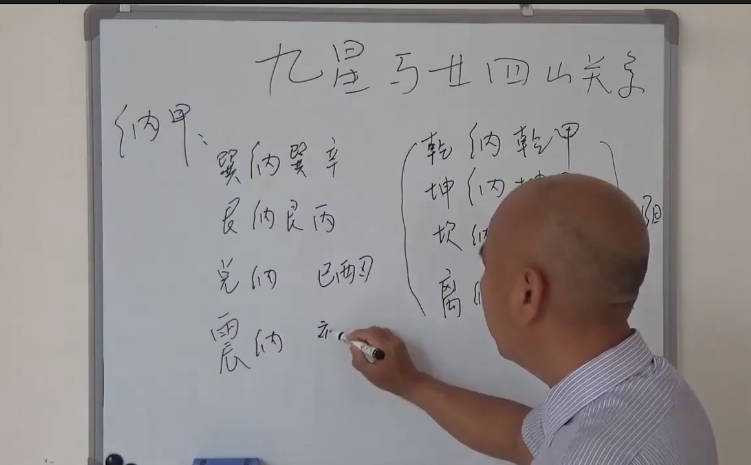 九星与廿四山关系
纳甲、
巽纳巽辛
艮纳艮丙
兑纳 巳酉丑
震纳
乾纳乾甲
坤纳坤
坎纳
离纳